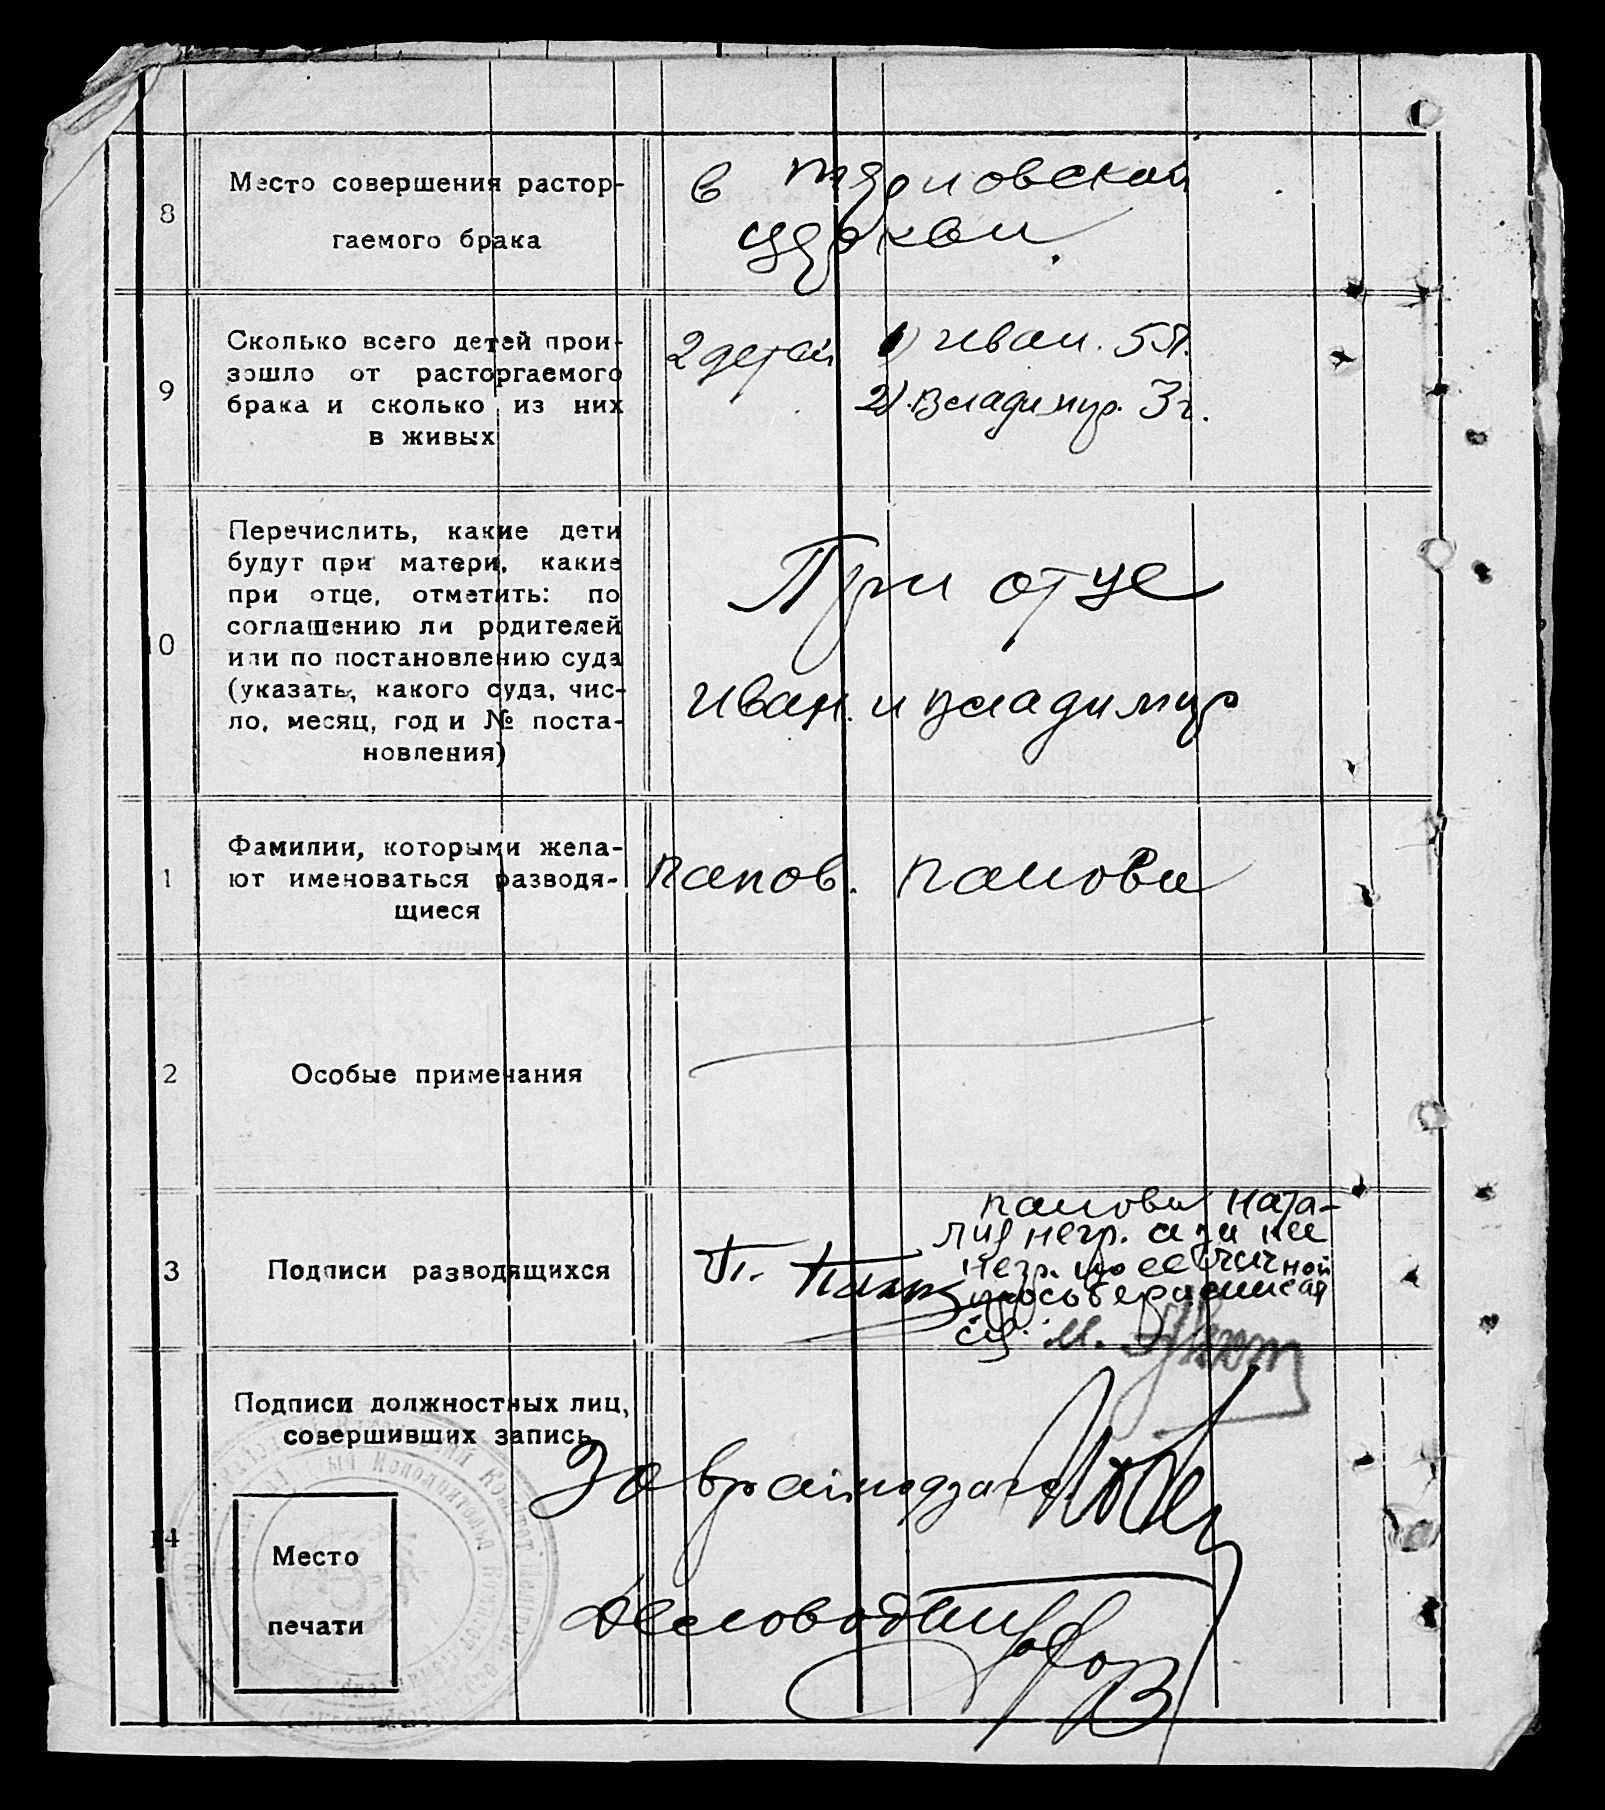 8
Место совершения растор-
гаемого брака
в
церкви.
9
Сколько всего детей прои-
зошло от расторгаемого
брака и сколько из них
в живых
2 детей 1) Иван. 5 л.
2). Владимир. 3 г.
10
Перечислить, какие дети
будут при матери, какие
при отце, отметить: по
соглашению ли родителей
или по постановлению суда
(указать, какого суда, чис-
ло, месяц, год и № поста-
новления)
При отце
Иван. и Владимир
1
Фамилии, которыми жела-
ют именоваться разводя-
щиеся
Панов. Панова
2
Особые примечания
3
Подписи разводящихся
Панова Ната-
лия негр. а за нее
негр. по ее личной
просьбе расписался
П.
М.
14
Подписи должностных лиц,
совершивших запись
Место
печати
Зав
Деловод